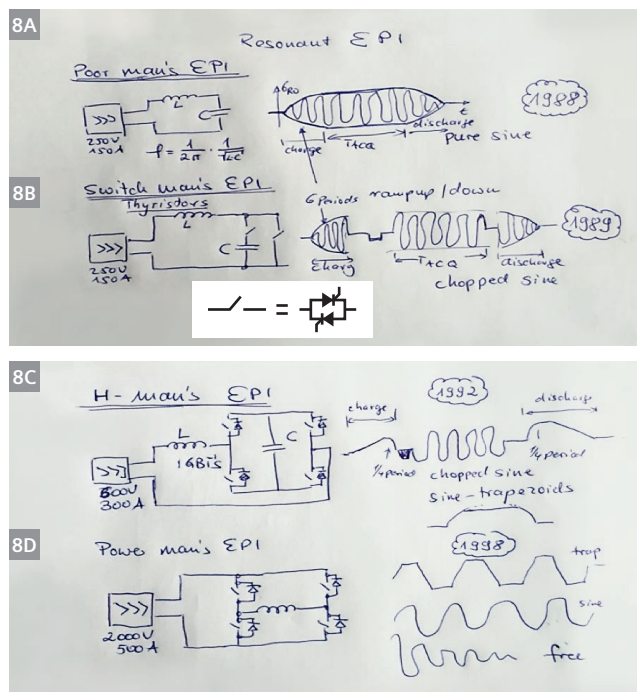 8A
Resonant EPI
Poor man's EPI
L
C
>>>
250V
150A
f = 1/2π · 1/√LC
GRO
t
charge
TACQ
discharge
pure sine
1988
8B
Switch man's EPI
Thyristors
L
C
>>>
250V
150A
6 Periods rampup/down
Charg
TACQ
discharge
chopped sine
1989
=
8C
H-man's EPI
1992
L
IGBTs
C
>>>
600V
300A
charge
discharge
1/4 period
1/4 period
chopped sine
sine-trapezoids
8D
Power man's EPI
1998
>>>
2000V
500A
trap
sine
free